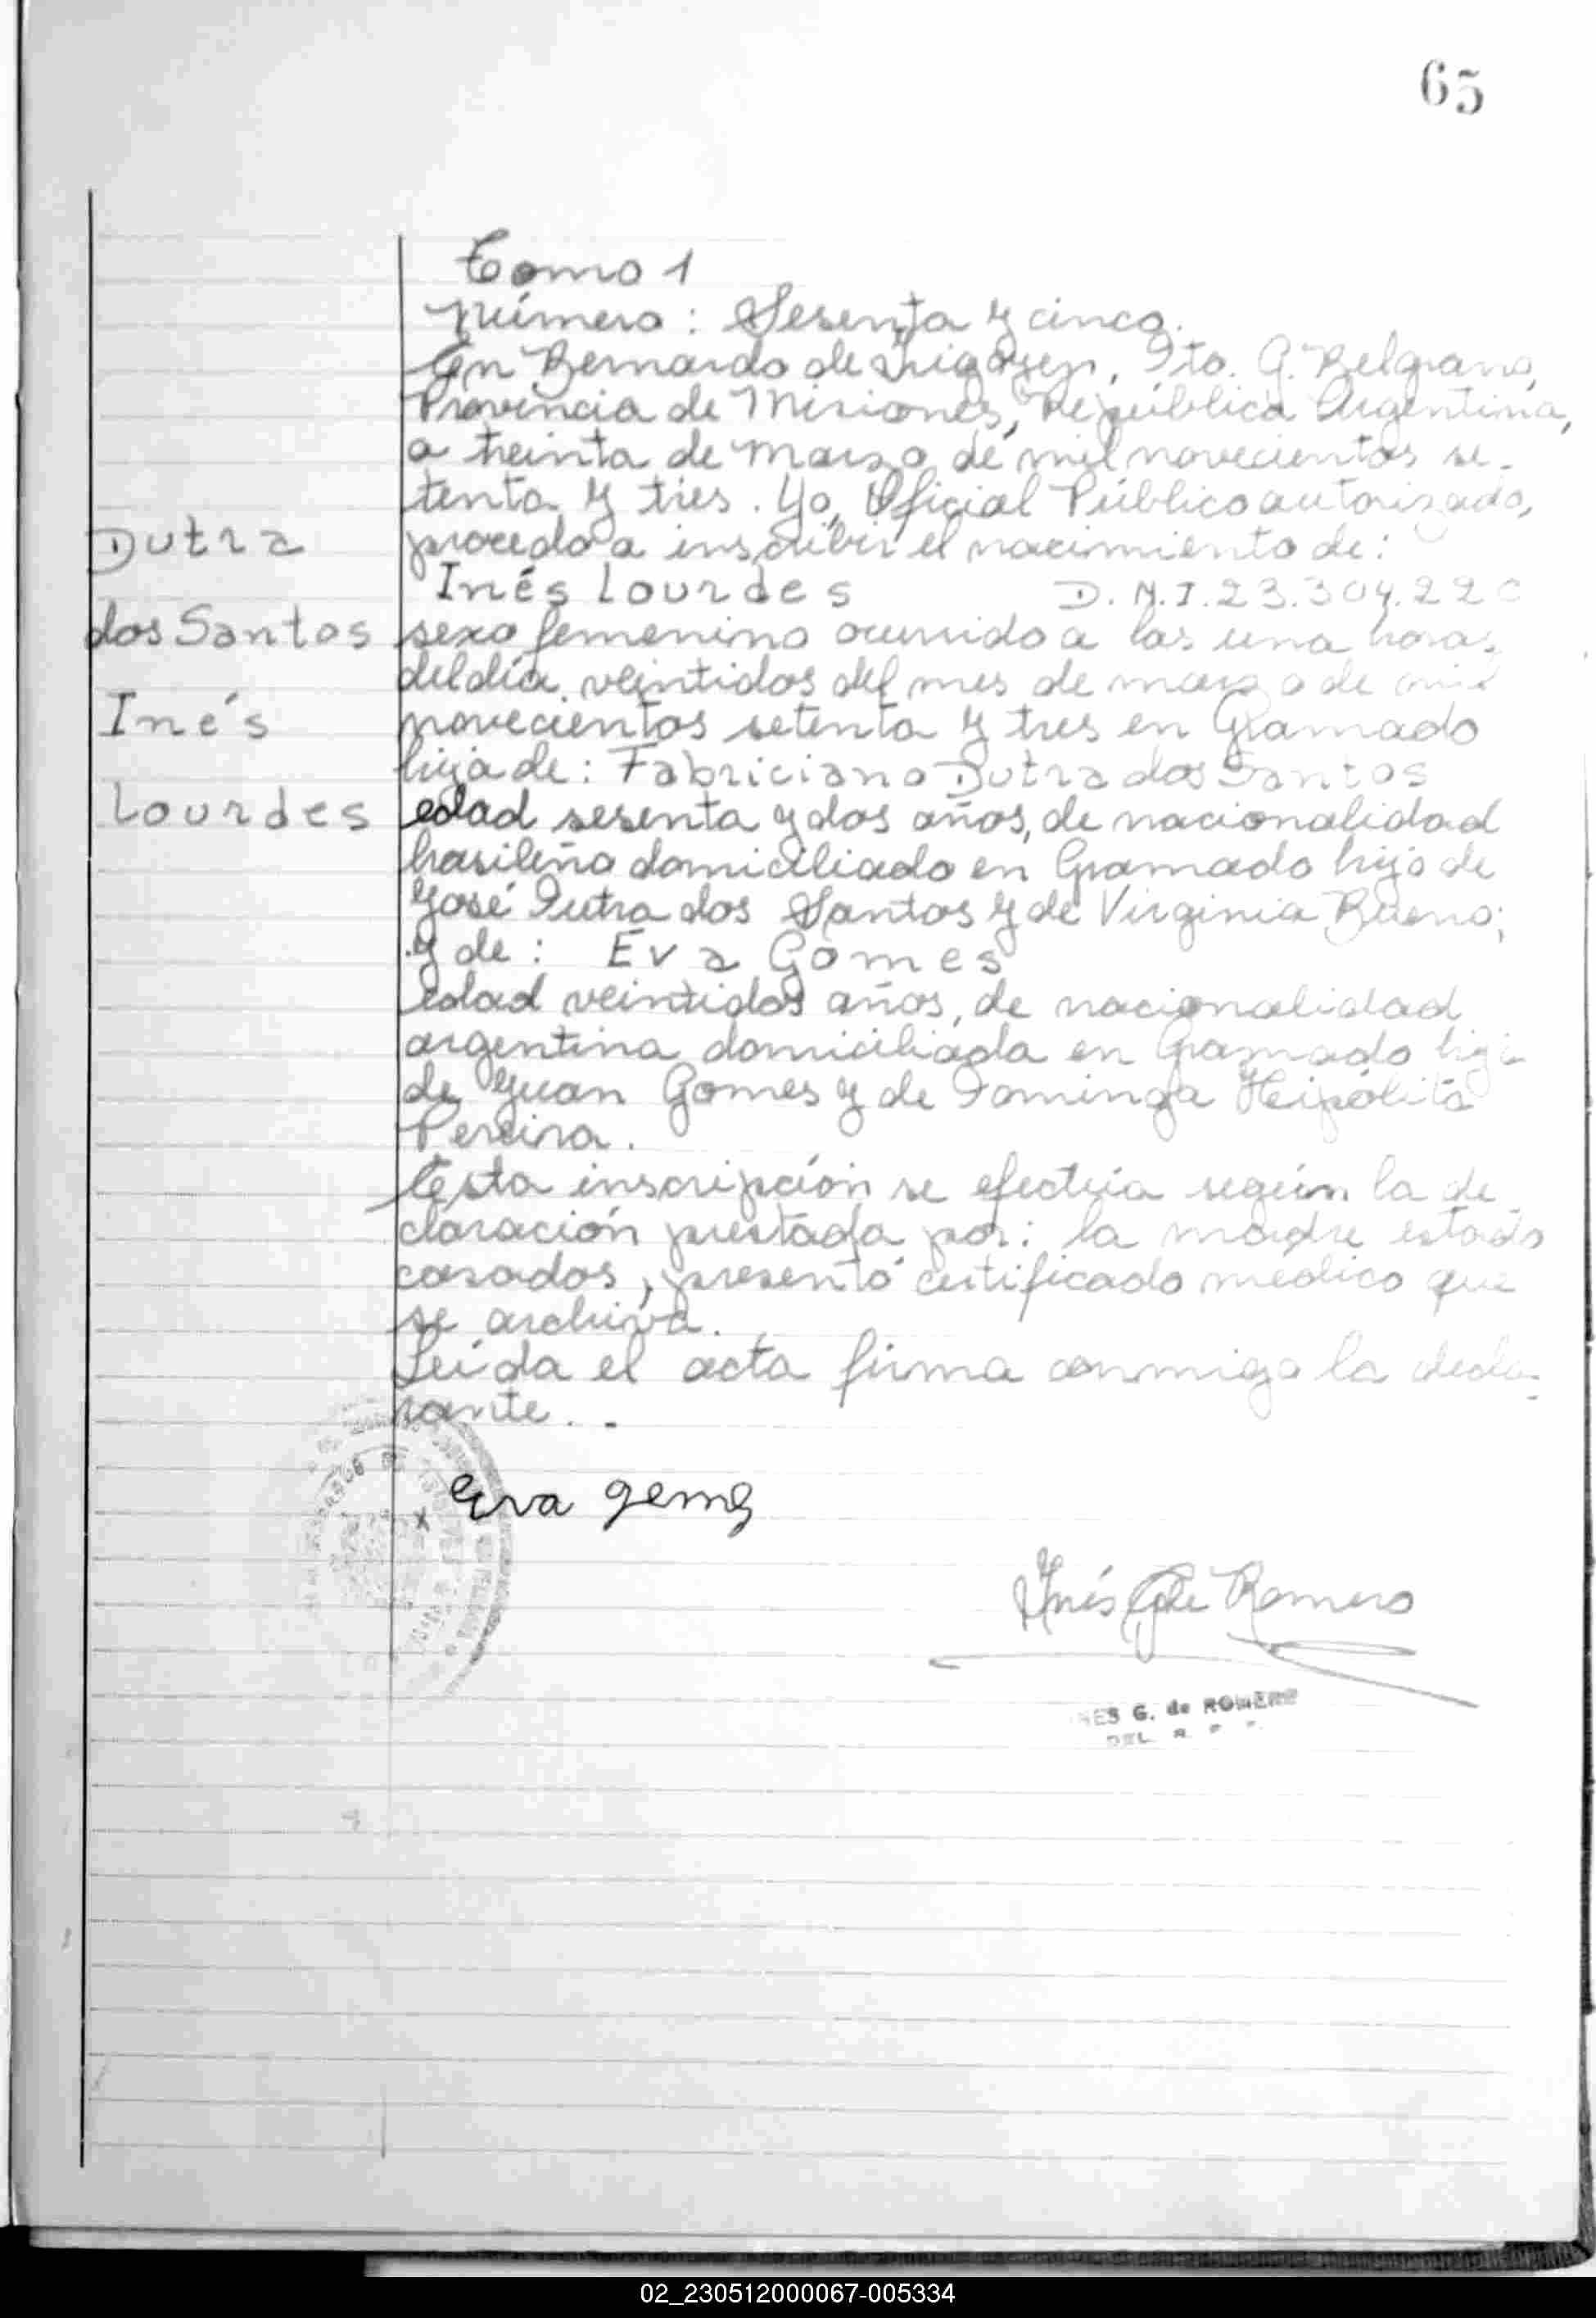 65
Tomo 1
Número: Sesenta y cinco.
En Bernardo de Irigoyen, Dto. G. Belgrano,
Provincia de Misiones, República Argentina,
a treinta de marzo de mil novecientos se-
tenta y tres. Yo, Oficial Público autorizado,
procedo a inscribir el nacimiento de:
Inés Lourdes D.N.I. 23.304.220
sexo femenino ocurrido a las una horas
del día veintidos del mes de marzo de mil
novecientos setenta y tres en Gramado
hija de: Fabriciano Dutra dos Santos
edad sesenta y dos años, de nacionalidad
brasileña domiciliado en Gramado hijo de
José Dutra dos Santos y de Virginia Bueno;
y de: Eva Gomes
edad veintidos años, de nacionalidad
argentina domiciliada en Gramado hija
de Juan Gomes y de Dominga Heipólita
Pereira.
Esta inscripción se efectúa según la de-
claración prestada por: la madre estado
casados, presentó certificado médico que
se archiva.
Leída el acta firma conmigo la decla-
rante. -
Dutra
dos Santos
Inés
Lourdes
Eva gemes
Inés G de Romero
INES G. de ROMERO
DEL. R. P.
02_230512000067-005334